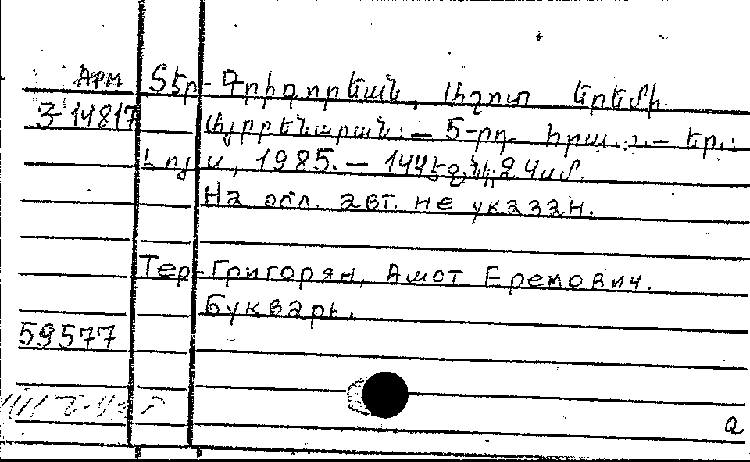 Арм Տեր-Գրիգորեան, Աշոտ Երեմի
3-14817 Այբբենարան. — 5-րդ հրատ. — Եր.:
Լույս, 1985. — 144 էջ, նկ. 24 սմ.
На обл. авт. не указан.
Тер-Григорян, Ашот Еремович.
Букварь.
59577
а